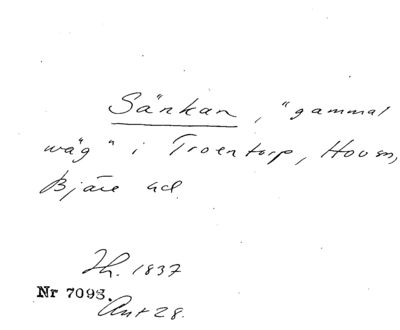 Sänkan, "gammal
wäg" i Troentorp, Hoven,
Bjäre hd.
Th. 1837
Nr 7093.
Ant 28.